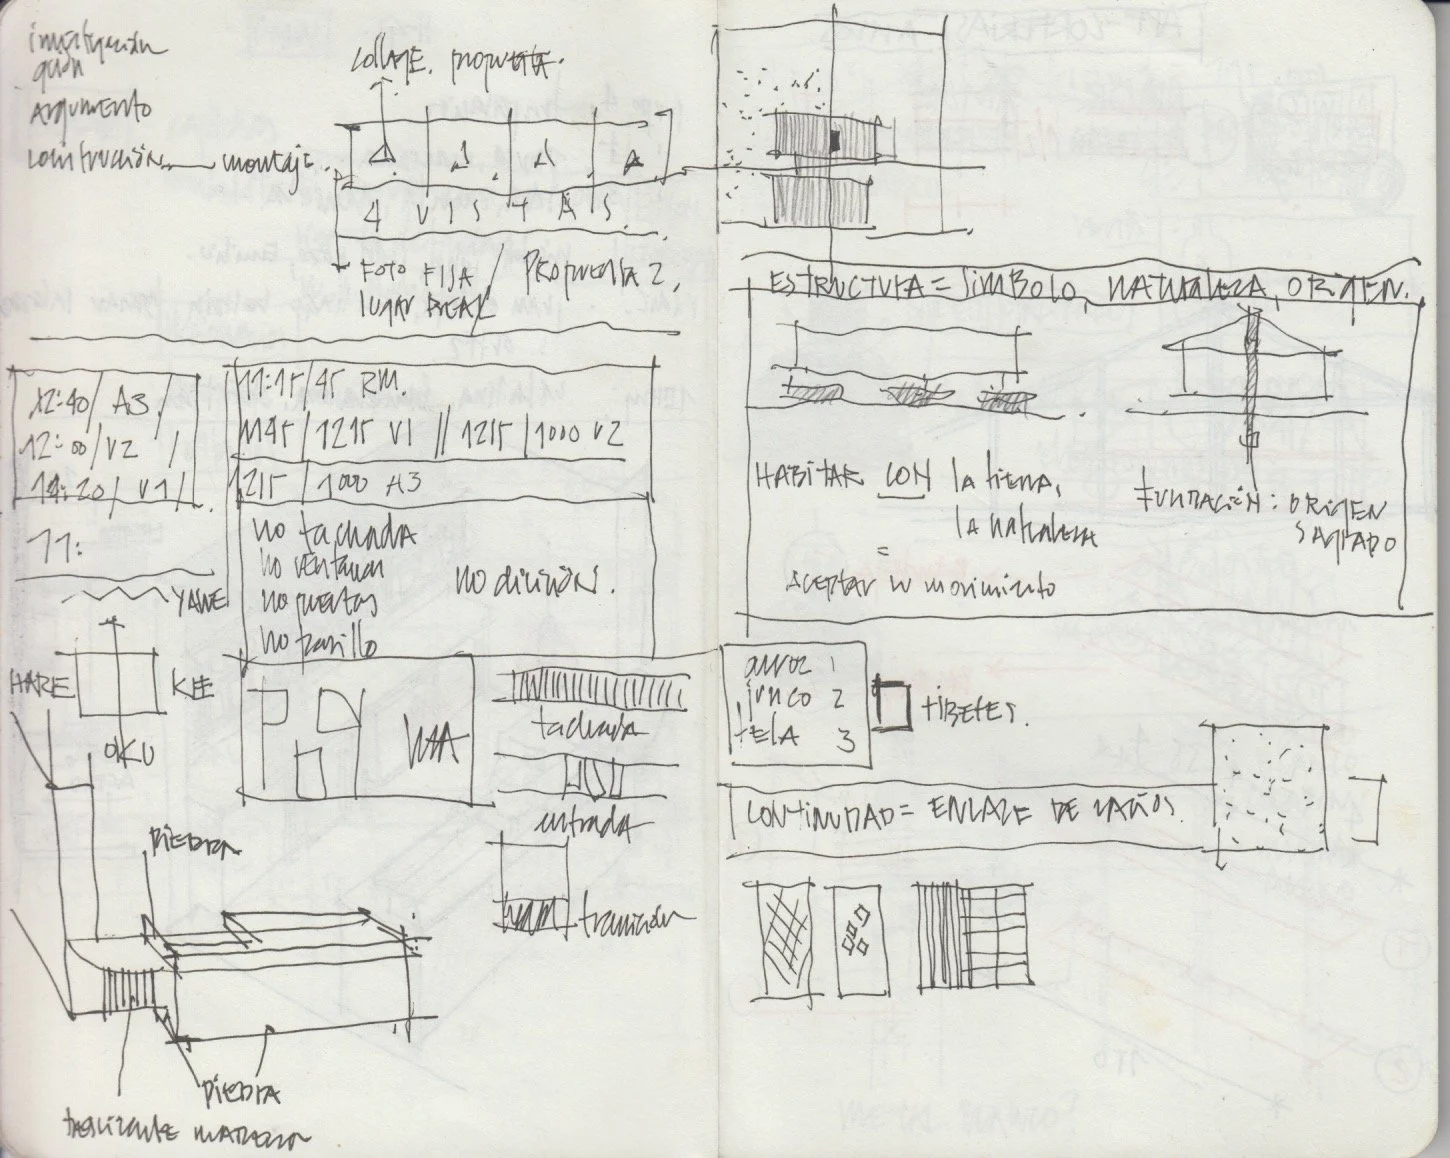 ARGUMENTO
CONSTRUCIÓN
montaje
COLLAGE. propuesta.
4 VISTAS
FOTO FIJA / PROPUESTA 2.
lugar REAL
12:40/ A3
12:00/ V2
14:20/ V1/
11:
11:15/45 RM.
1145/1215 V1 // 1215/1000 V2
1215/1000 A3
no fachada
no ventanas
no puertas
no pasillo
no división.
YANE
HARE
KEE
OKU
fachada
entrada
transición
PIEDRA
PIEDRA
ESTRUCTURA = SIMBOLO, NATURALEZA, ORIGEN.
HABITAR CON la tierra,
la naturaleza
=
aceptar su movimiento
FUNDACIÓN: ORIGEN
SAGRADO
arroz 1
junco 2
TELA 3
RIBETES.
CONTINUIDAD = ENLACE DE VACÍOS.